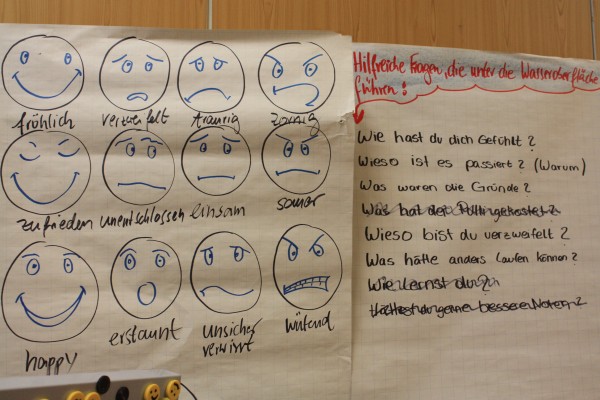 fröhlich verzweifelt traurig zornig
zufrieden unentschlossen einsam sauer
happy erstaunt unsicher wütend
verwirrt
Hilfreiche Fragen, die unter die Wasseroberfläche
führen:
Wie hast du dich Gefühlt?
Wieso ist es passiert? (Warum)
Was waren die Gründe?
Was hat der Pulli gekostet?
Wieso bist du verzweifelt?
Was hätte anders laufen können?
Wie lernst du?